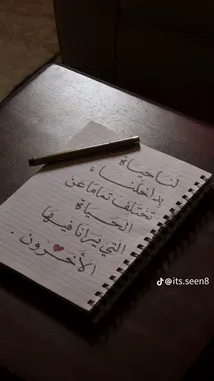 لنا حياة
بداخلنا
تختلف تمامًا عن
الحياة
التي يرانا فيها
الآخرون.
@its.seen8